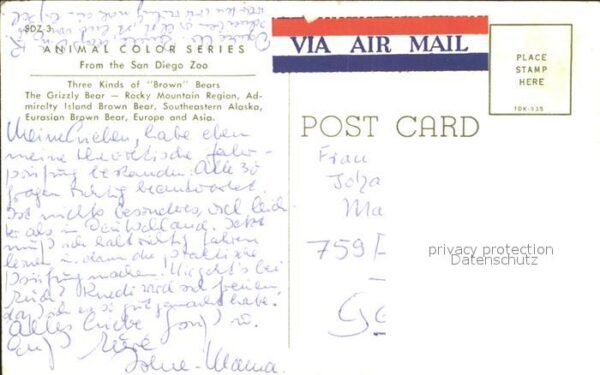 SDZ-3
ANIMAL COLOR SERIES
From the San Diego Zoo
Three Kinds of "Brown" Bears
The Grizzly Bear — Rocky Mountain Region, Ad-
mirelty Island Brown Bear, Southeastern Alaska,
Eurasian Brown Bear, Europe and Asia.
Meine Lieben, habe eben
meine theoretische Fahr-
prüfung bestanden. Alle 30
Fragen richtig beantwortet.
Ist nichts besonderes, viel leich-
ter als in Deutschland. Jetzt
muß ich halt richtig fahren
lernen u. dann die praktische
Prüfung machen. Wie geht's bei
Rudi wird sich freuen,
daß ich es so gut gemacht habe.
Alles Liebe
Eure
Mama
VIA AIR MAIL
PLACE
STAMP
HERE
IDK-535
POST CARD
Frau
Joha
Ma
759
privacy protection
Datenschutz